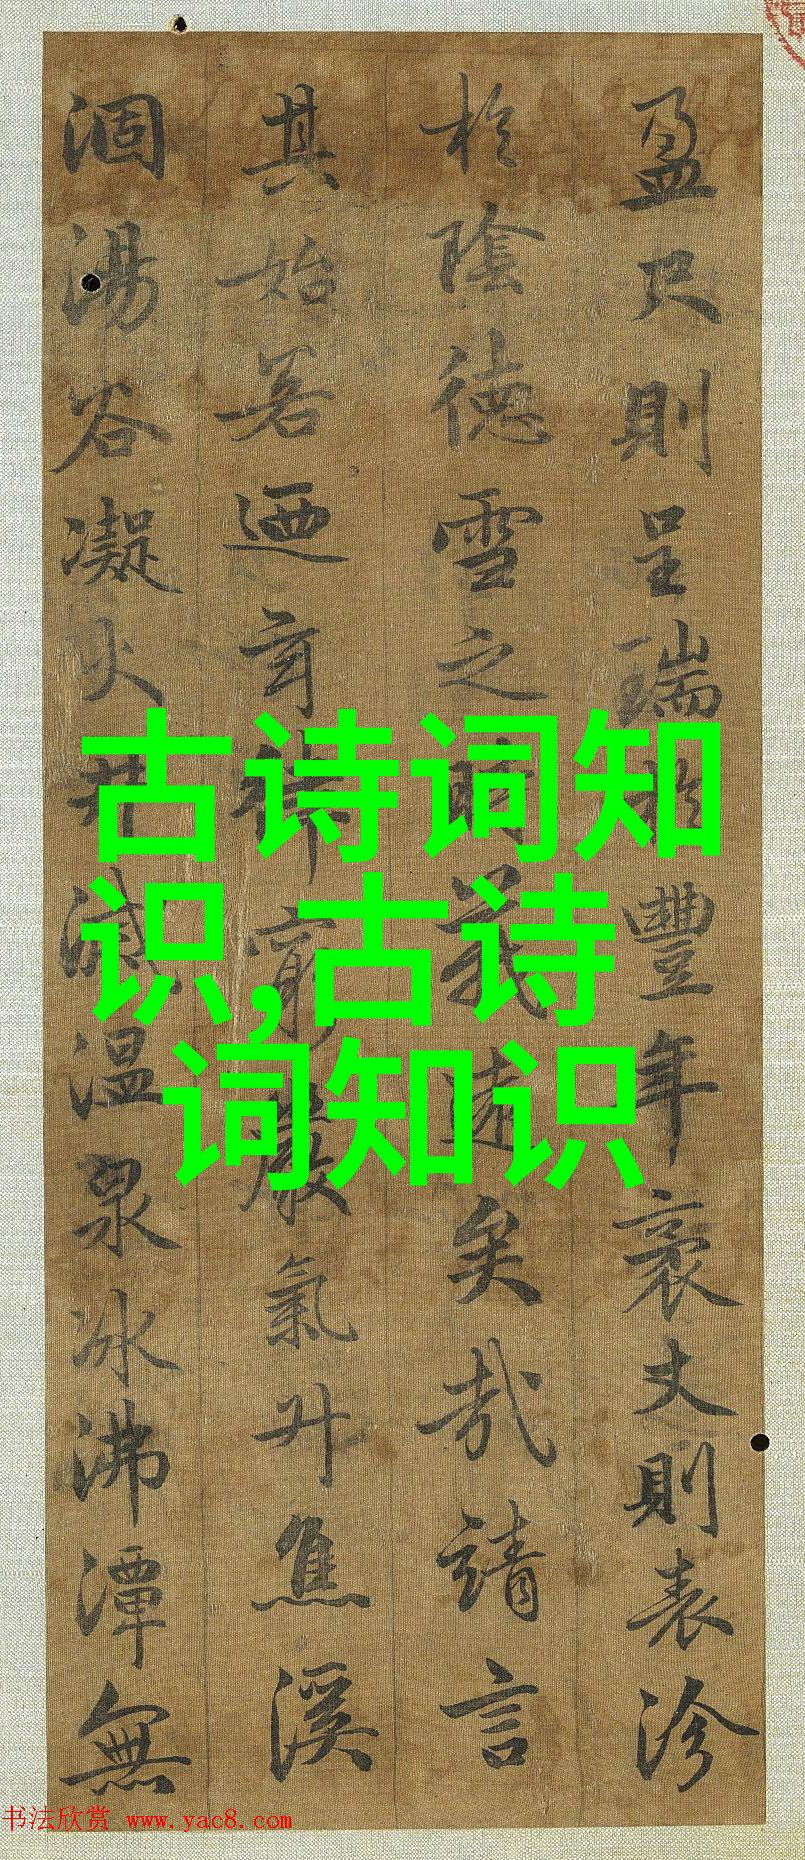 盈尺則呈瑞於豐年袤丈則表沴
於陰德雪之時義遠矣哉請言
其始若迺玄律窮嚴氣升焦溪
涸湯谷凝火井滅温泉冰沸潭無
古诗词知
识,古诗
词知识
书法欣赏 www.yac8.com